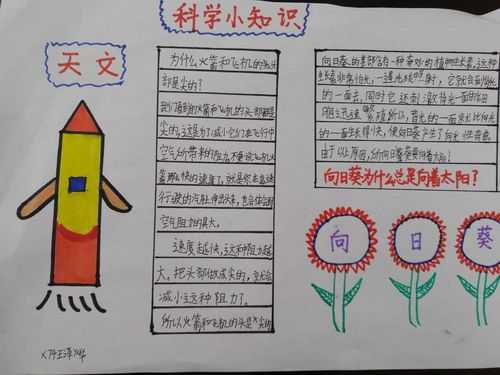 科学小知识
天文
为什么火箭和飞机的头
都是尖的?
我们看到的火箭和飞机的头部都是
尖的,这是为了减小它们在飞行中
空气所带来的阻力,不要说飞机火
箭那么快的速度了,就是你在高速
行驶的汽车伸出头来,也会体会到
空气阻力的具大。
速度越快,这种阻力越
大,把头部做成尖的,就会
减小这种阻力了。
所以火箭和飞机的头是尖的
向日葵的茎部含有一种奇妙的植物生长素,这种
生长素非常怕光,一遇光线照射,它就会到背光
的一面去,同时它还刺激背光一面的细
胞迅速繁殖,所以,背光的一面就比向光
的一面生长得快,使向日葵产生了向光性弯曲
由于以上原因,所向日葵总要向着太阳!
向日葵为什么总是向着太阳?
向
日
葵